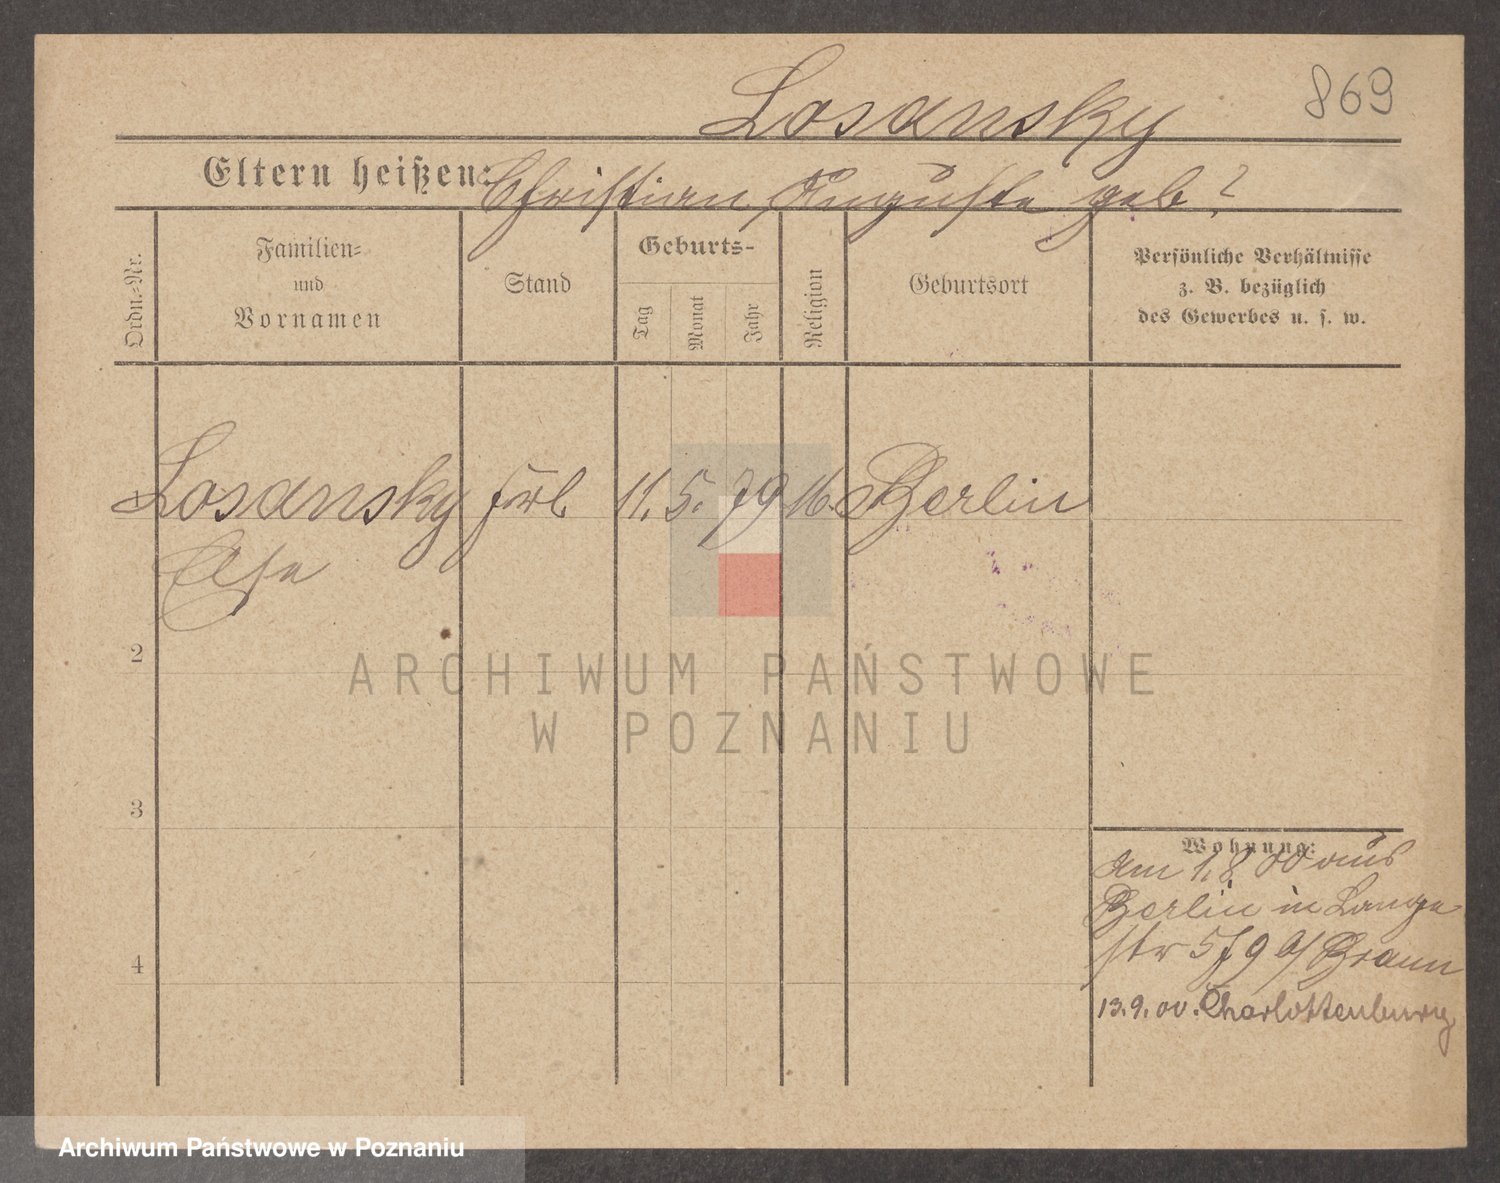 869
Losansky
Eltern heißen: Christian, Auguste geb?
Ordn.-Nr.
Familien-
und
Vornamen
Stand
Geburts-
Tag
Monat
Jahr
Religion
Geburtsort
Persönliche Verhältnisse
z. B. bezüglich
des Gewerbes u. s. w.
Losansky frl 11. 5. 79 Berlin
Else
2
ARCHIWUM PAŃSTWOWE
W POZNANIU
3
Wohnung:
am 1.8.00 aus
Berlin in Lange
str Braun
4
13.9.00. Charlottenburg
Archiwum Państwowe w Poznaniu